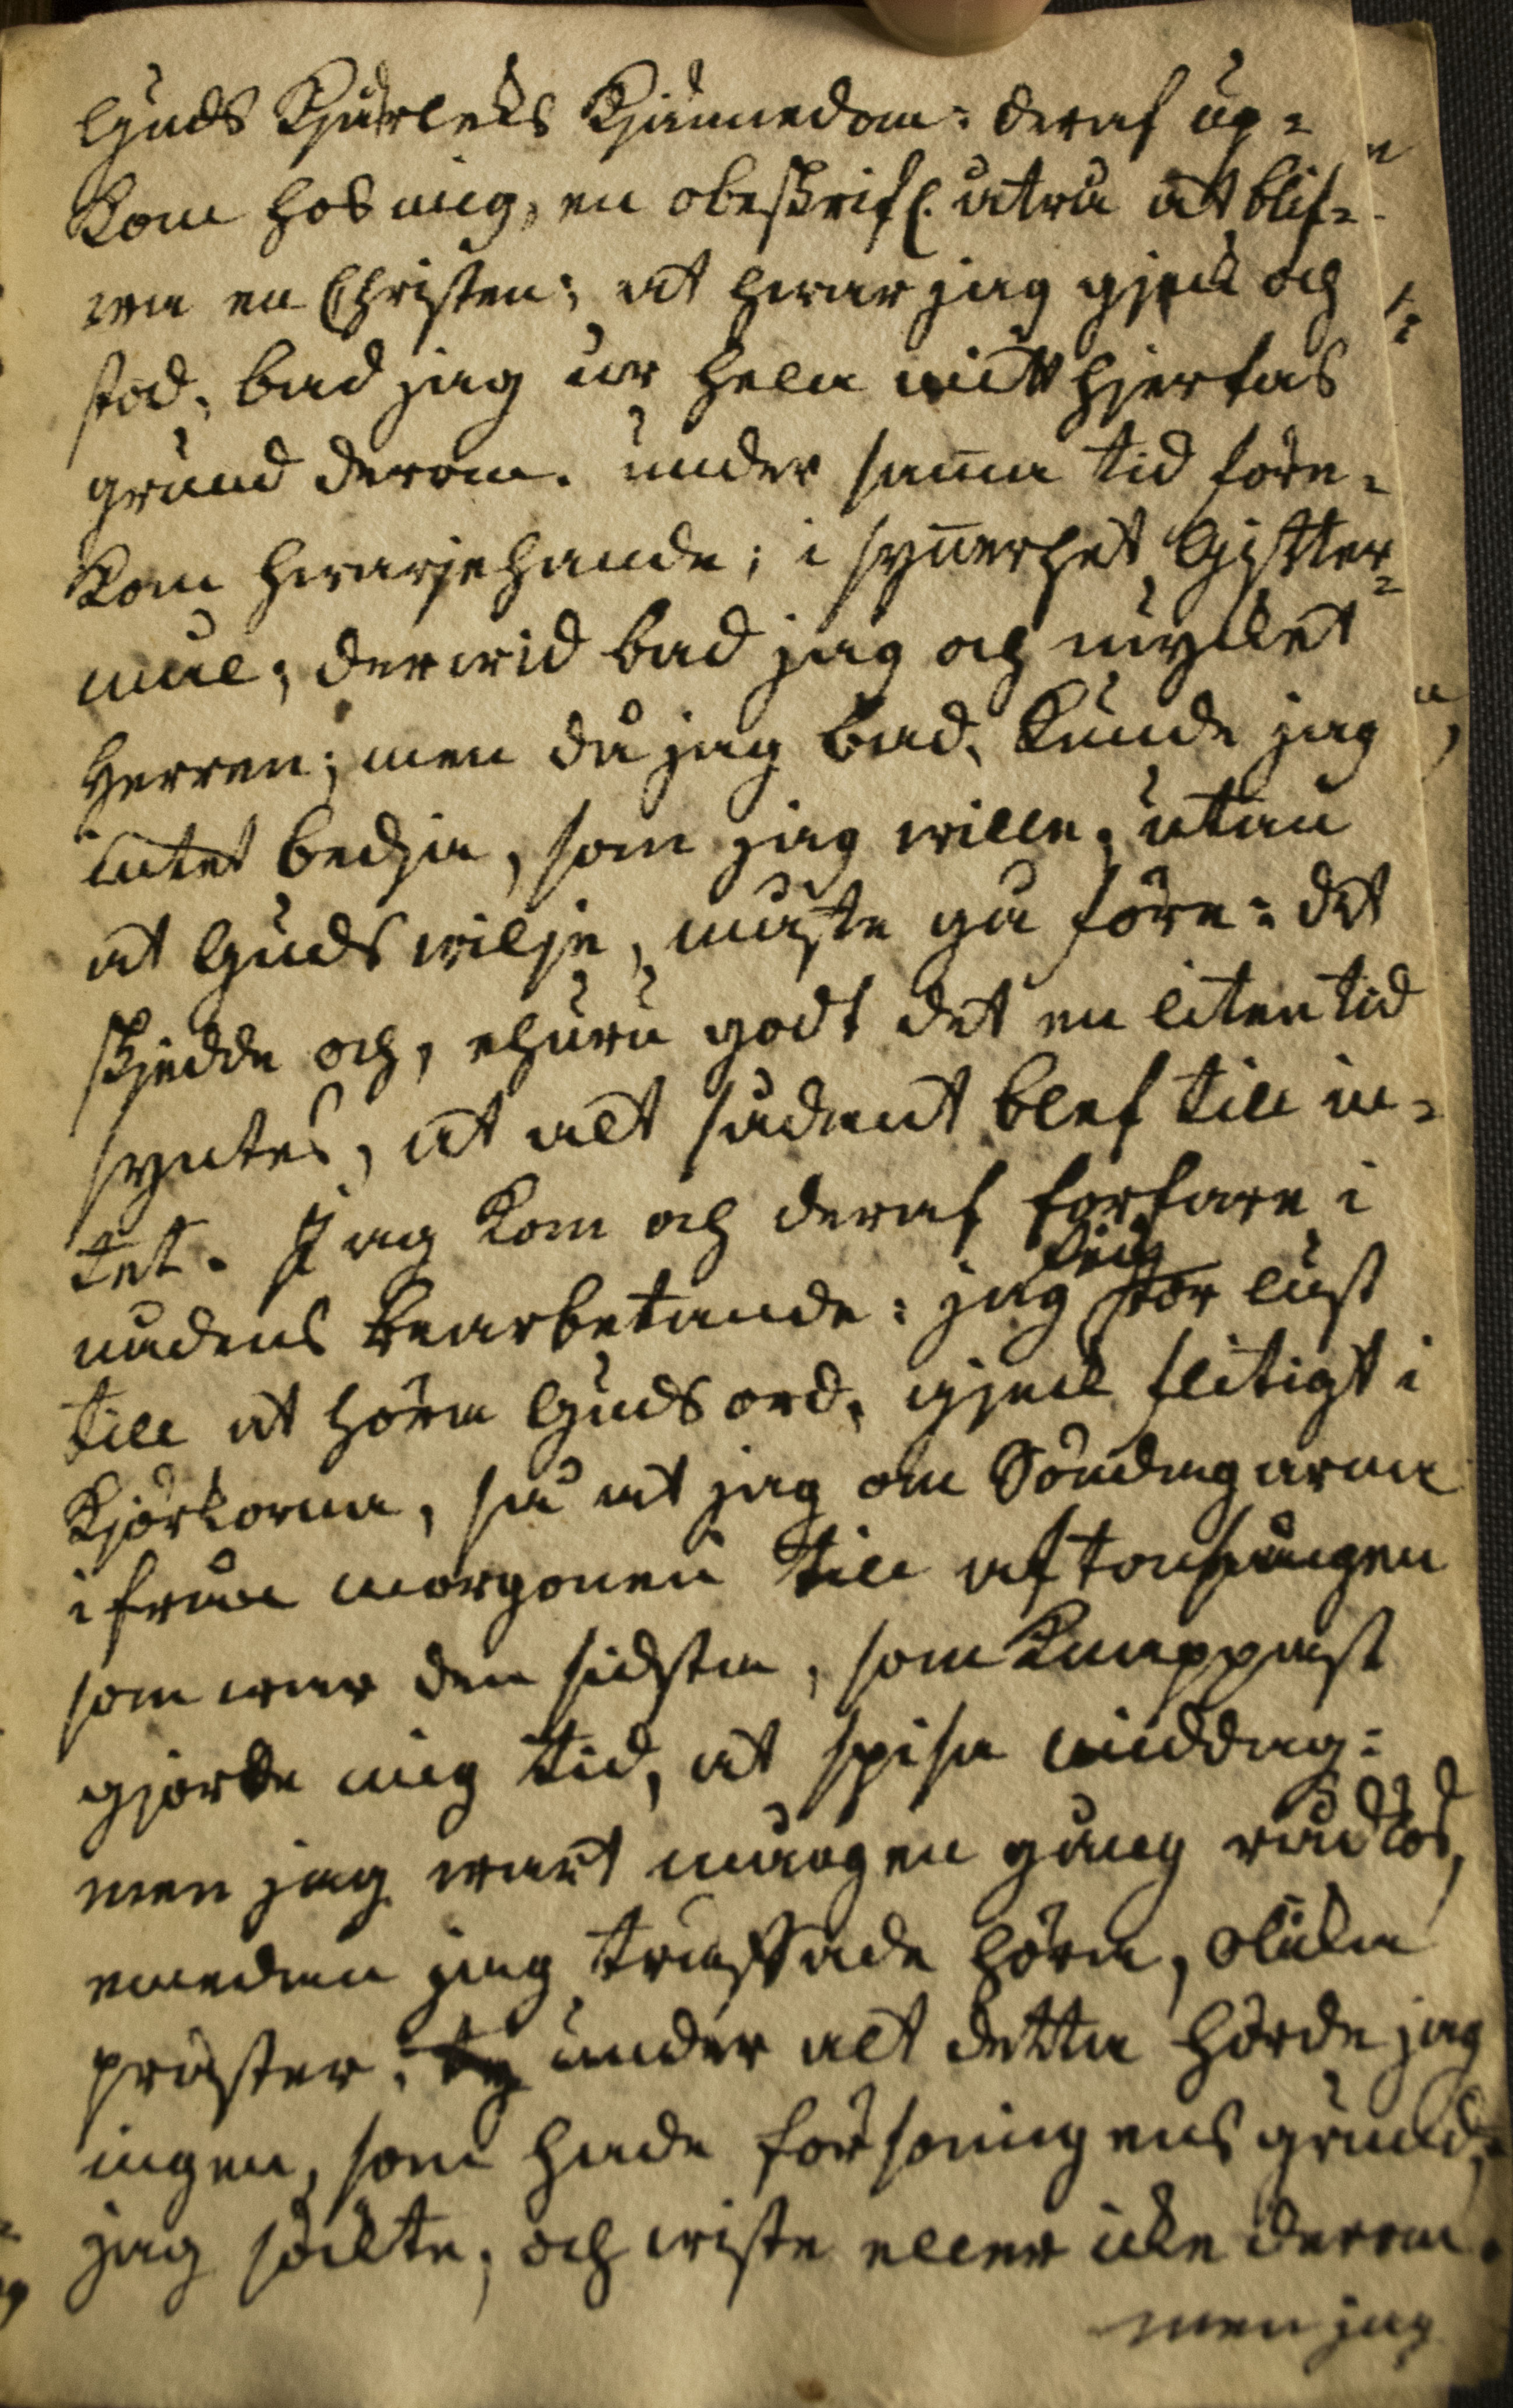 Guds Kjärleks Kjännedom: deraf up=
kom hos mig, en obeskrifl. atrå at blif=
wa en Christen; at hwar jag gjeck och
stod, bad jag ur hela mitt hjertas
grund derom. under sam̄a tid före=
kom hwarjehanda; i syn̄erhet Gifter=
mål; derwid bad jag och mycket
Herren; men då jag bad, kunde jag
intet bedja, som jag wille, utan
at Guds wilje, måste gå före: det
skjedde och, ehuru godt det en liten tid
syntes, at alt sådant blef till in=
tet. Jag kom och deraf i
nådens bearbetande: jag fick stor lust
till at höra Guds ord, gjeck flitigt i
Kjörkorna, så at jag om Söndagarna
ifrån morgonen till aftonsången
som war den sidsta, som knappast
gjorde mig tid, at spisa middag:
men jag wart mången gång rådlös,
emedan jag trässade höra, olika
präster. under alt detta hörde jag
ingen, som hade försoningens grund,
jag sökte, och wiste eller icke derom.
men jag